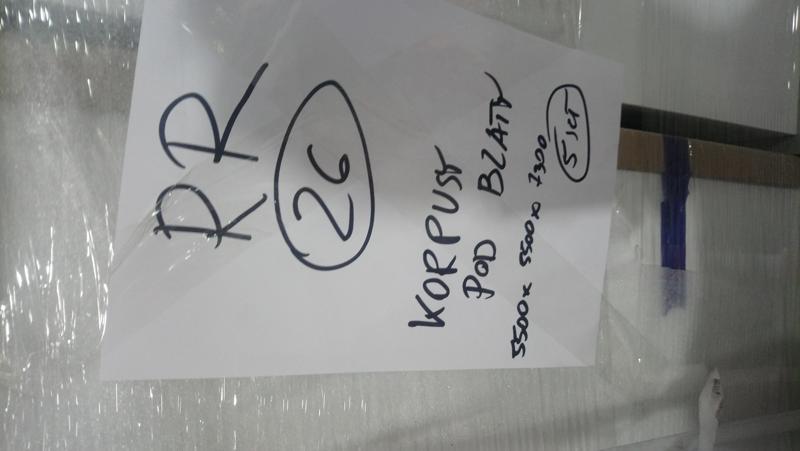 RR
26
KORPUSY
POD BLATY
5500x 5500x 7300
5 szt